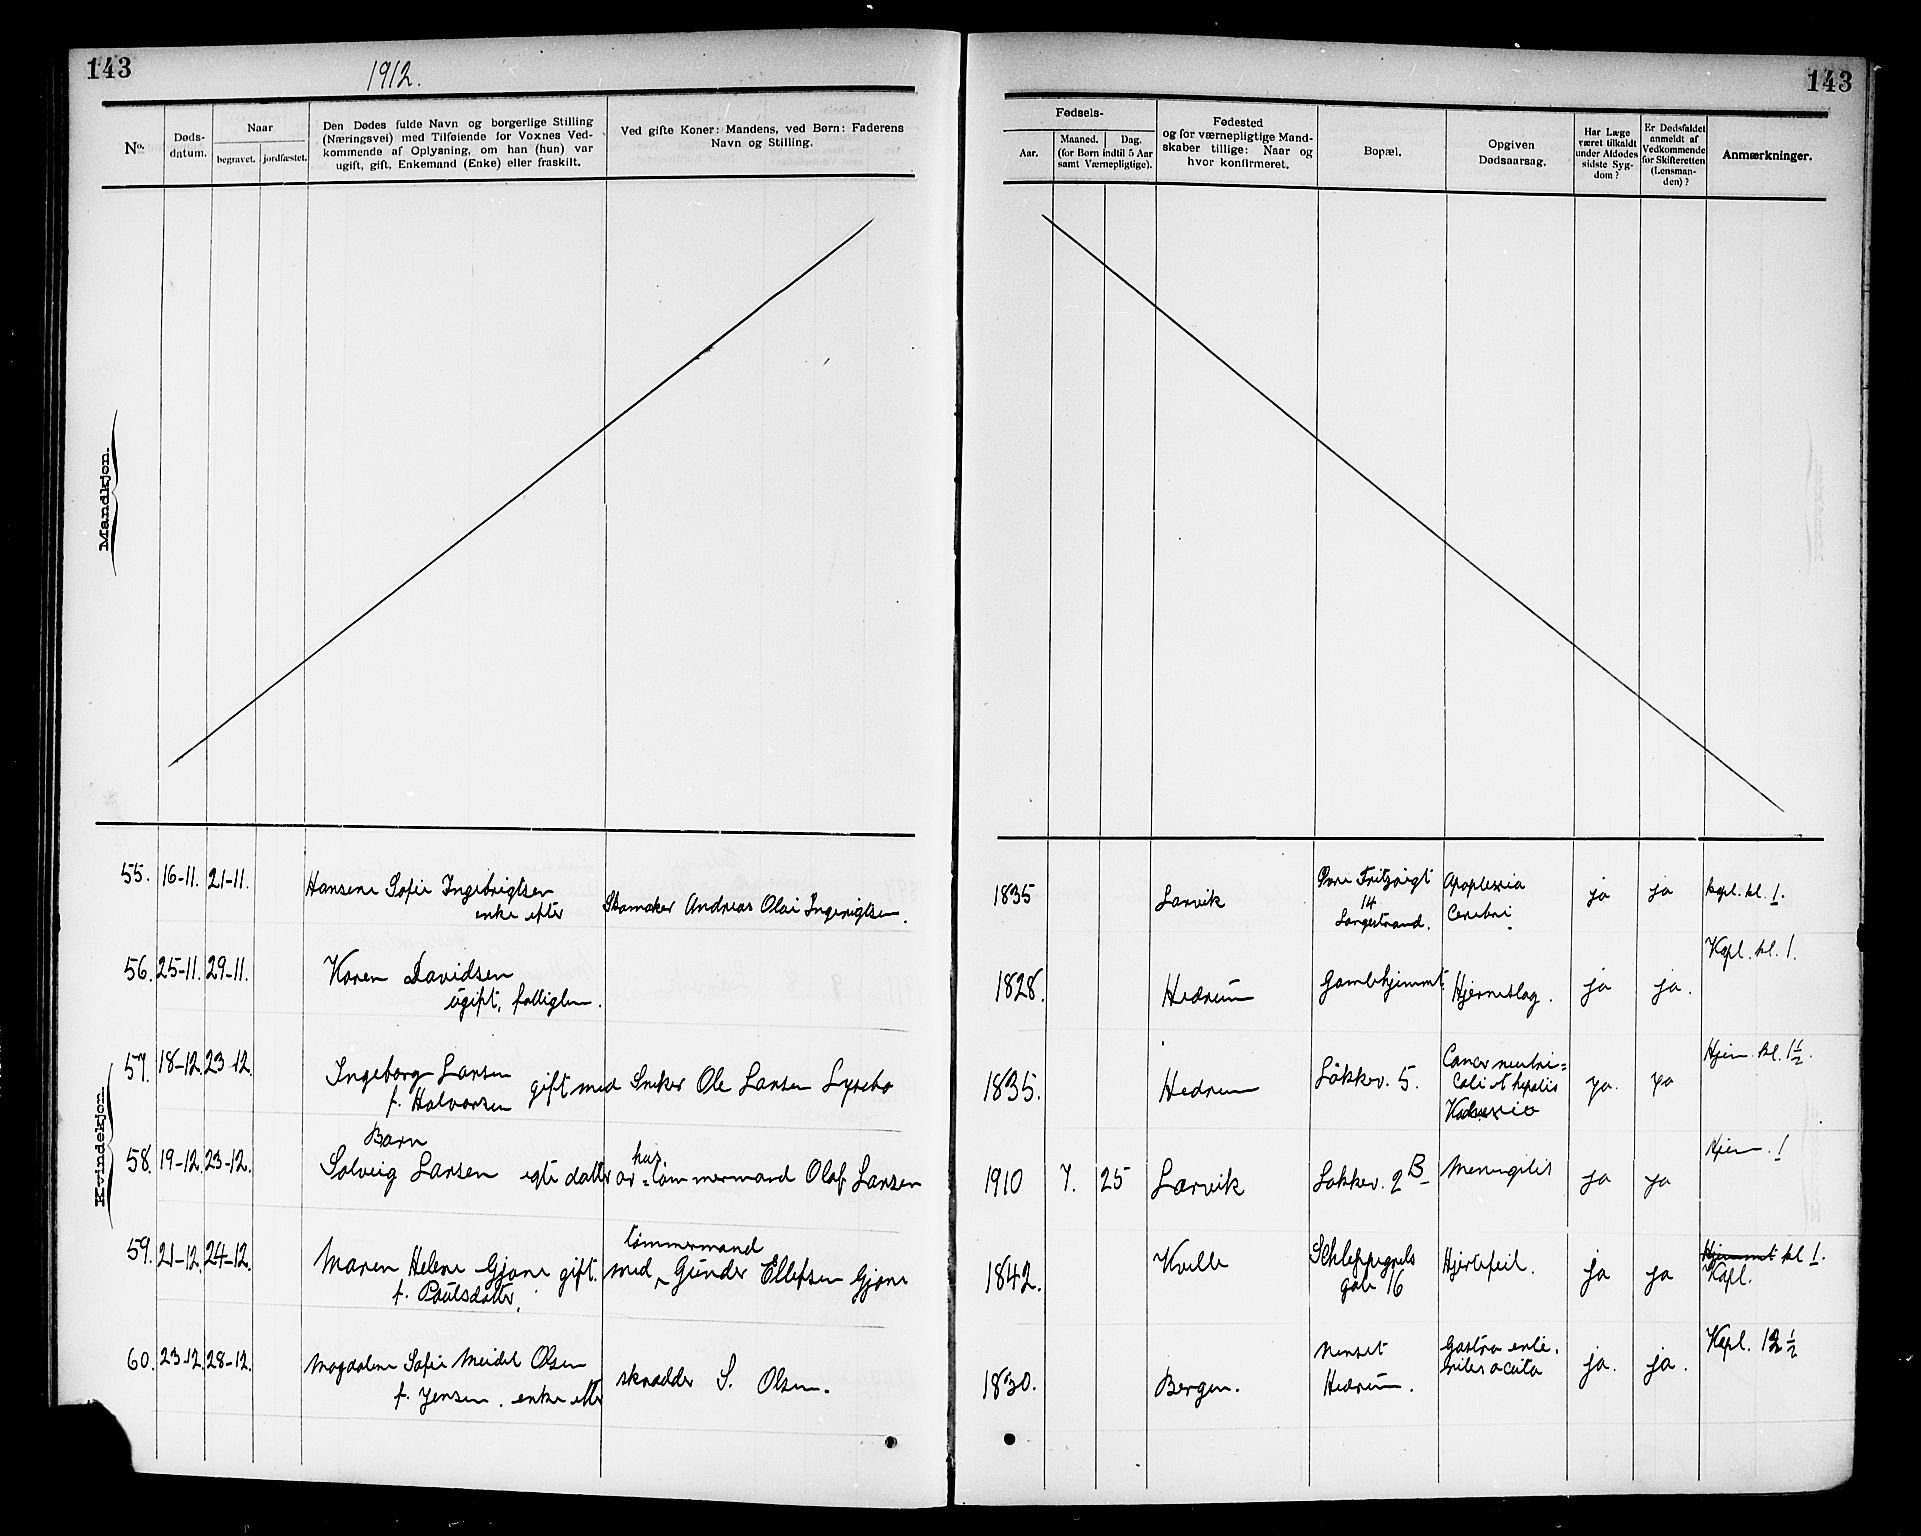 143
1912.
143
No.
Døds-
datum.
Naar
begravet.
jordfæstet.
Den Dødes fulde Navn og borgerlige Stilling
(Næringsvei) med Tilføiende for Voxnes Ved-
kommende af Oplysning, om han (hun) var
ugift, gift, Enkemand (Enke) eller fraskilt.
Ved gifte Koner: Mandens, ved Børn: Faderens
Navn og Stilling.
Fødsels-
Aar.
Maaned. Dag.
(for Børn indtil 5 Aar
samt Værnepligtige).
Fødested
og for værnepligtige Mand-
skaber tillige: Naar og
hvor konfirmeret.
Bopæl.
Opgiven
Dødsaarsag.
Har Læge
været tilkaldt
under Afdødes
sidste Syg-
dom?
Er Dødsfaldet
anmeldt af
Vedkommende
for Skifteretten
(Lensman-
den)?
Anmærkninger.
Mandkjøn.
Kvindekjøn.
55. 16-11. 21-11. Hansene Sofie Ingebrigtsen
enke efter Skomaker Andreas Olai Ingerigtsen.
1835 Larvik Øvre Fritzøigt
14
Langestrand.
Apoplexia
Cerebri.
ja ja kapl. kl. 1.
56. 25-11. 29-11. Karen Davidsen
ugift, fattiglem.
1828. Hedrum Gamlehjemmet Hjerneslag. ja ja. Kapl. kl. 1.
57. 18-12. 23-12. Ingeborg Larsen
f. Halvorsen gift med Sneker Ole Larsen Lysebo
1835. Hedrum Løkkev. 5. Cancer ventri=
culi et hepatis
ja. ja Hjem kl. 1½.
58. 19-12. 23-12. Barn
Solveig Larsen egte datter av hus=tømmermand Olaf Larsen
1910 7. 25 Larvik Løkkev. 2 B Meningitis ja ja Hjem. 1
59. 21-12. 24-12. Maren Helene Gjone gift. med tømmermand Gunder Ellefsen Gjone
f. Paulsdatter.
1842. Kvelle Schleppegrels
gate 16
Hjertefeil. ja ja Hjemmet kl 1.
Kapl.
60. 23-12. 28-12. Magdalene Sofie Meidel Olsen
f. Jensen. enke efter skrædder S. Olsen.
1830. Bergen. Nanset
Hedrum.
Gastro ente-
rites acuta
ja. ja. Kapl. 12½